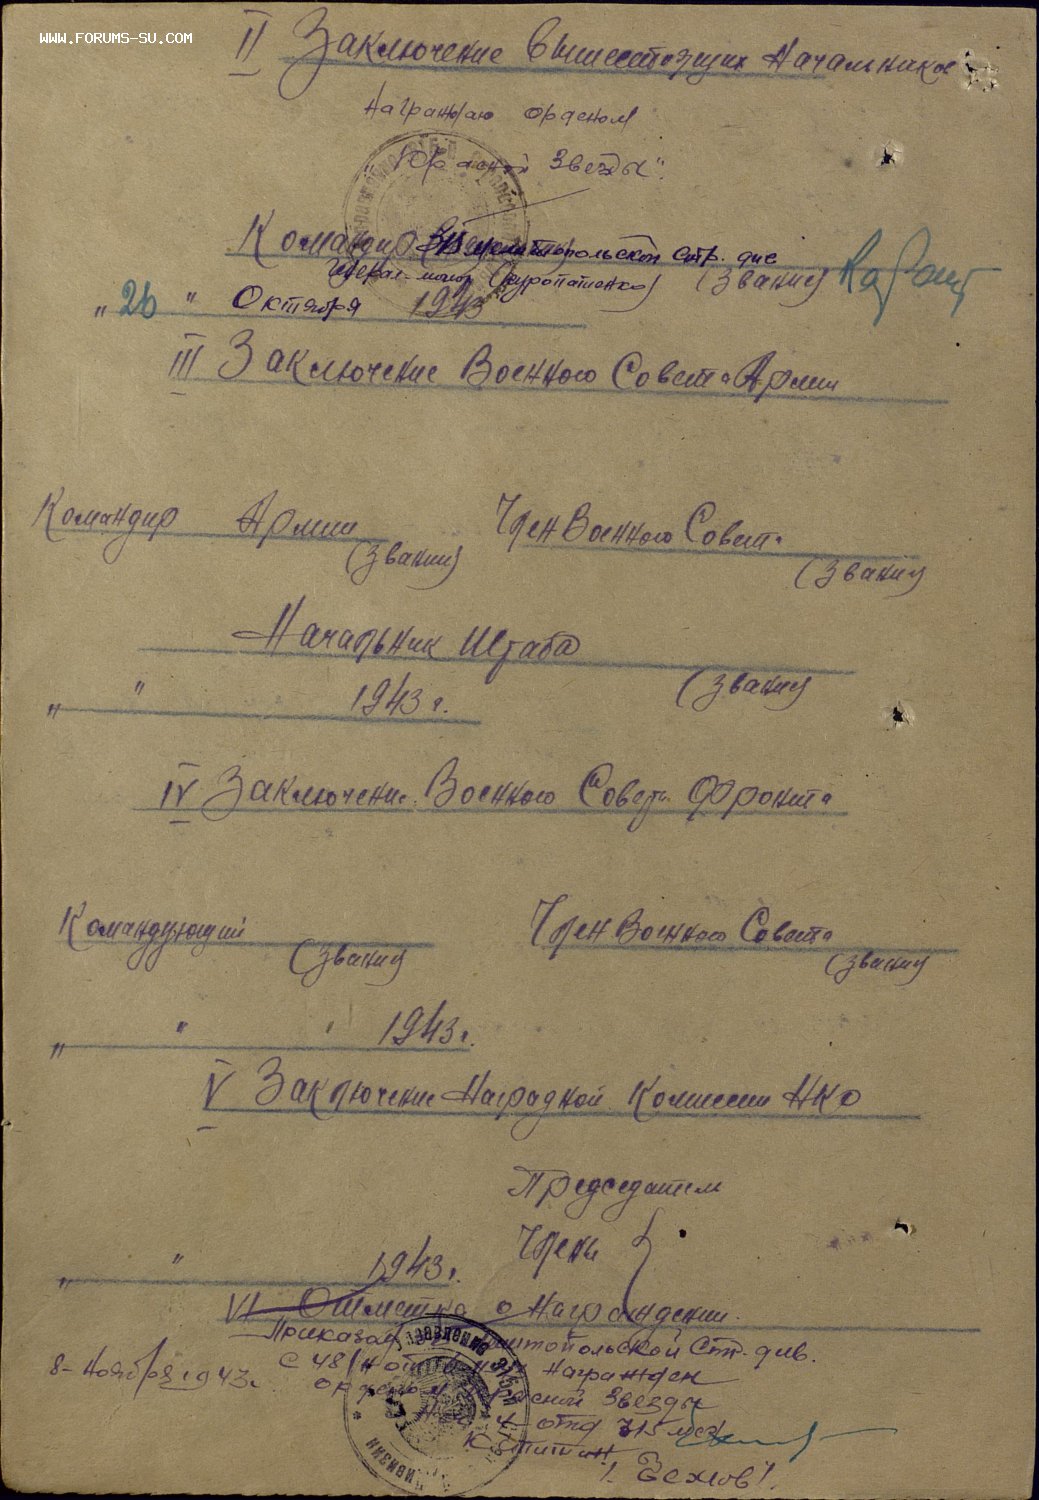 WWW.FORUMS-SU.COM
II Заключение вышестоящих Начальников
Награждаю орденом
"Красной Звезды".
Командир 315 Мелитопольской стр. див
Генерал-майор (Куропатенко) (звание)
"26" Октября 1943
III Заключение Военного Совета Армии
Командир Армии Член Военного Совета
(звание) (звание)
Начальник Штаба
(звание)
" " 1943 г.
IV Заключение Военного Совета Фронта
Командующий Член Военного Совета
(звание) (звание)
" " 1943 г.
V Заключение Наградной Комиссии НКО
Председатель
Члены
" " 1943 г.
VI Отметка о Награждении.
Приказом Мелитопольской Стр. див.
Награжден
8 Ноября 1943 г. орденом Красной Звезды
4 отд 315 мсд
Капитан
/Чехлов/.